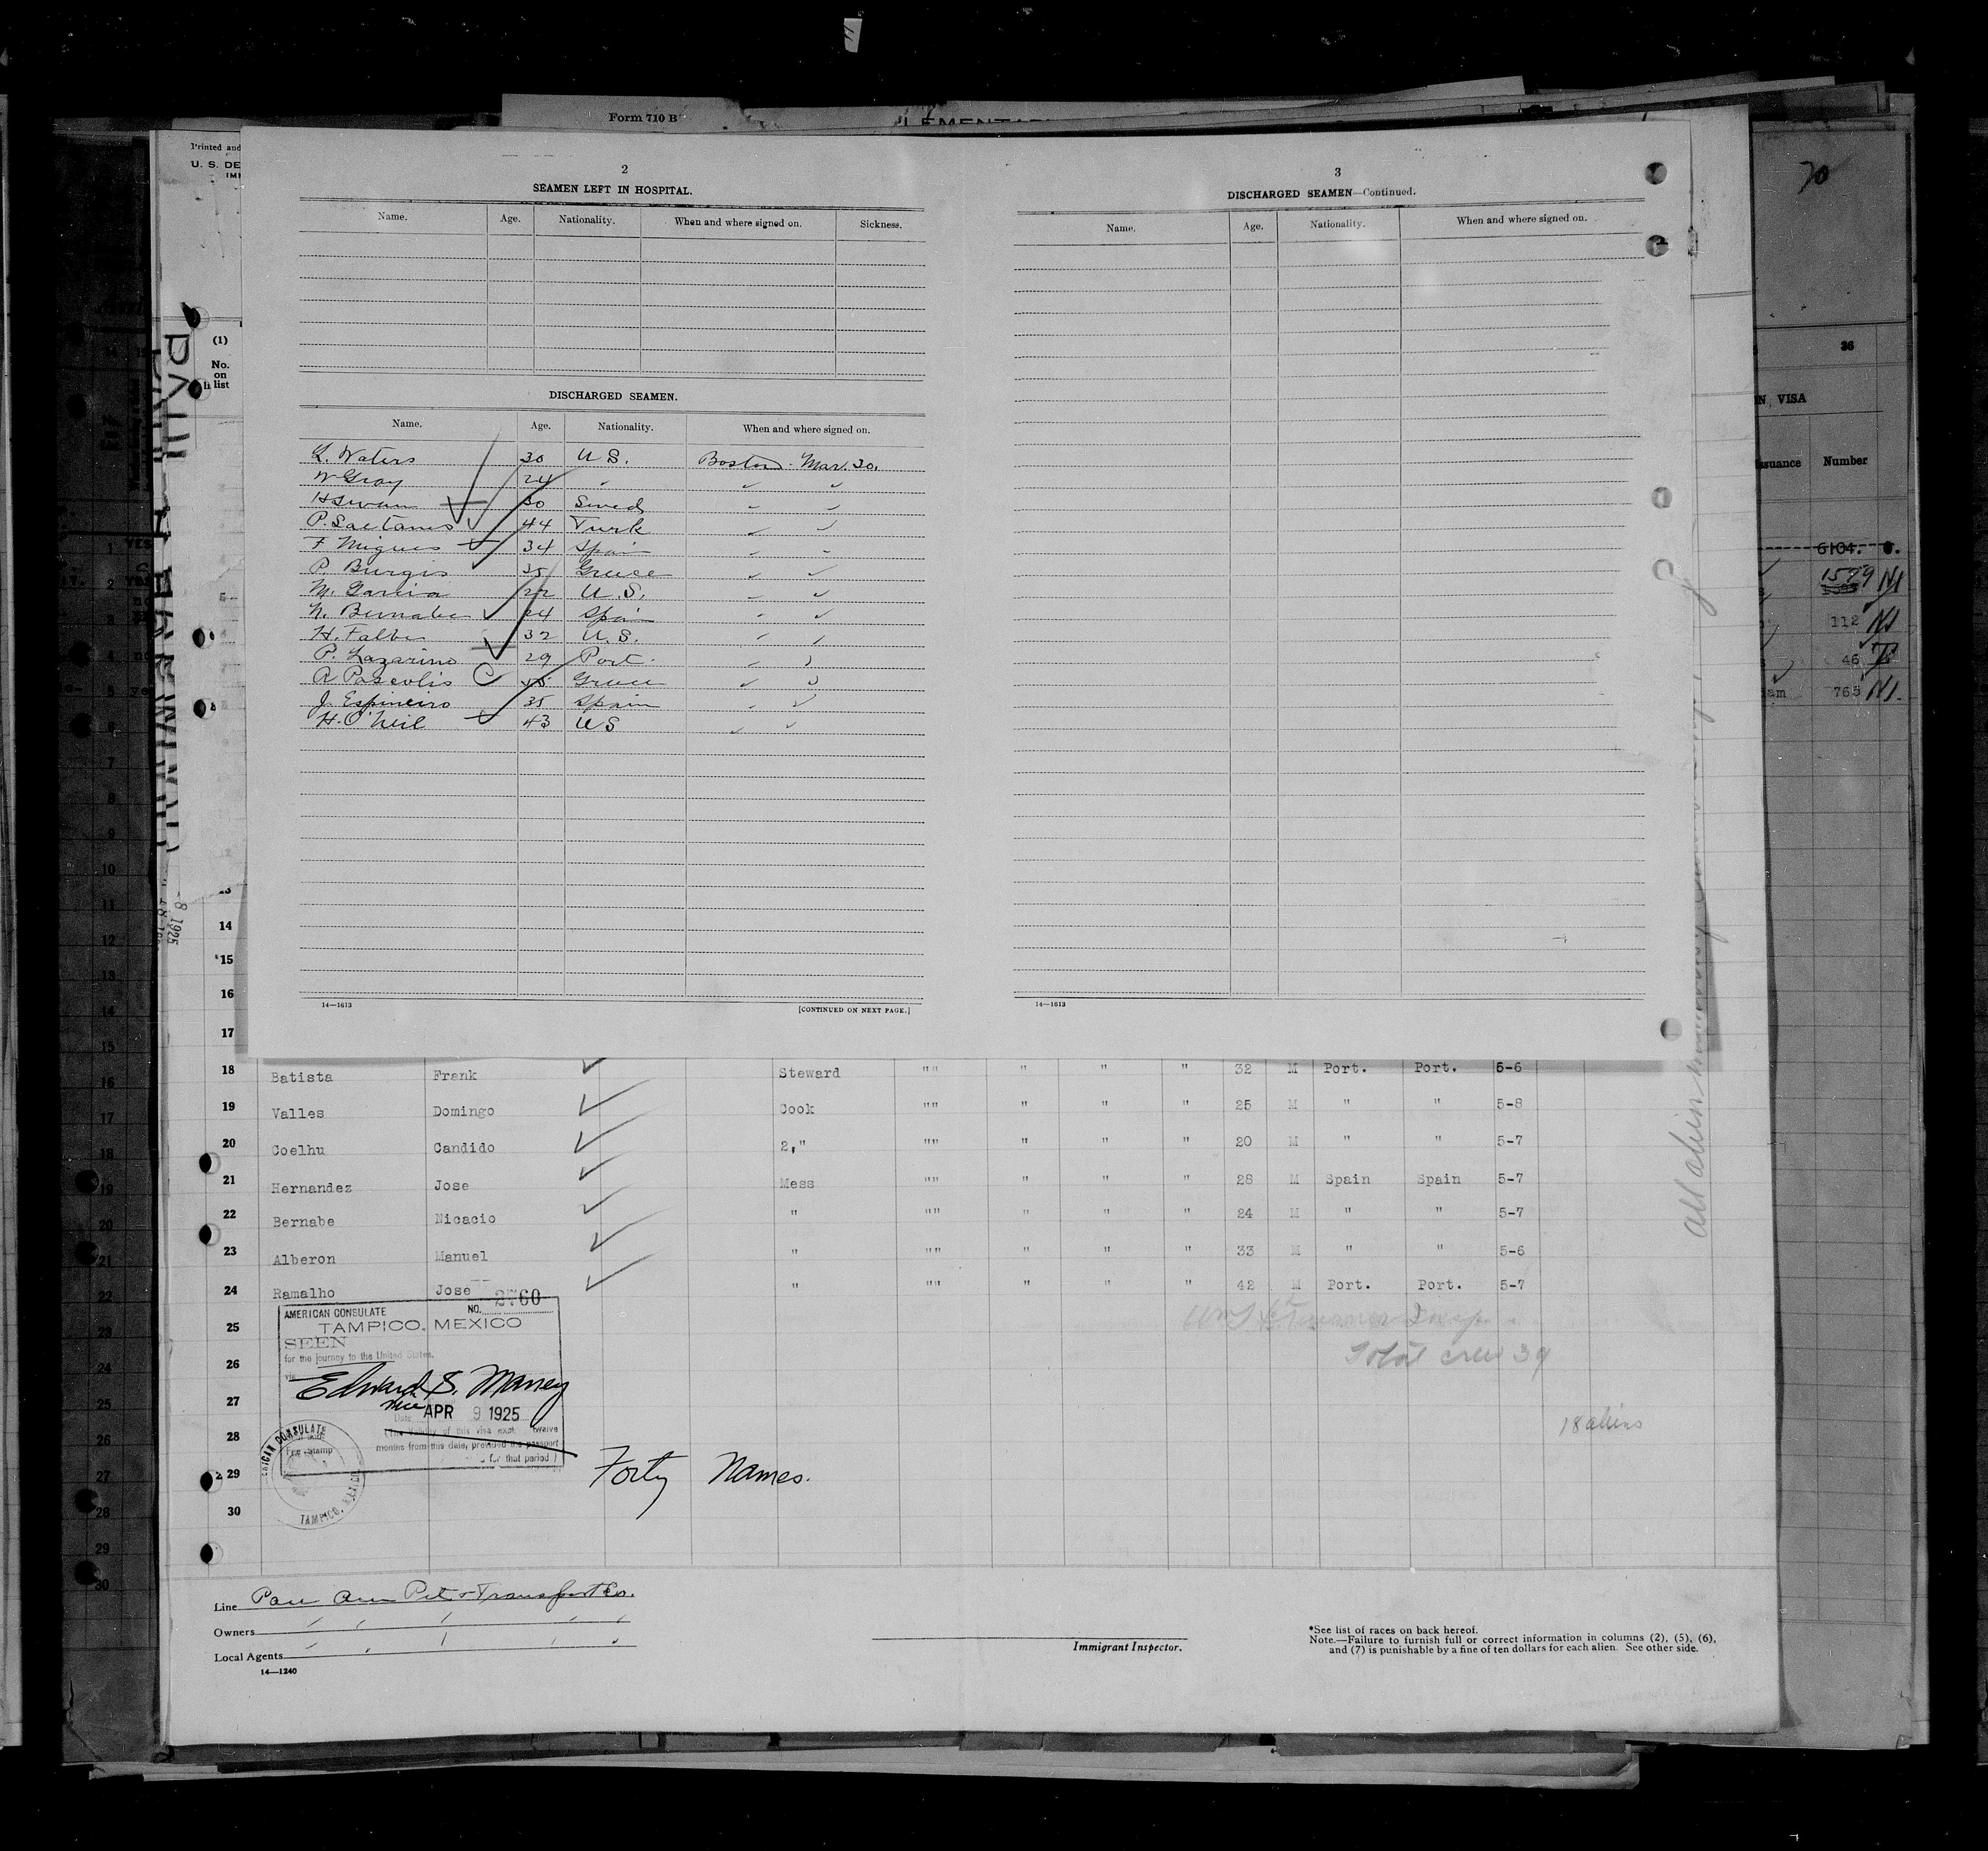 Form 710 B
Printed and
U. S. DE
IMI
70
2
SEAMEN LEFT IN HOSPITAL.
Name. Age. Nationality. When and where signed on. Sickness.
DISCHARGED SEAMEN.
Name. Age. Nationality. When and where signed on.
L. Waters 30 U S. Boston. Mar. 30.
W Gray 24
H Swan 30 Swed
44 Turk
F Migues 34 Spain
P. Burgis 35 Greece
M. Garcia 22 U.S.
N. Bernabe 24 Spain
H. Falbe 32 U.S.
P. Lazarino 29 Port.
A Pascolis C 45 Greece
J. Espineiro 35 Spain
H. O'Neil 43 U S
14—1613 [CONTINUED ON NEXT PAGE.]
3
DISCHARGED SEAMEN—Continued.
Name. Age. Nationality. When and where signed on.
14—1613
(1)
No.
on
list
14
15
16
17
18 Batista Frank Steward "" " " " 32 M Port. Port. 5-6
19 Valles Domingo Cook "" " " " 25 M " " 5-8
20 Coelhu Candido 2," "" " " " 20 M " " 5-7
21 Hernandez Jose Mess "" " " " 28 M Spain Spain 5-7
22 Bernabe Nicacio " "" " " " 24 M " " 5-7
23 Alberon Manuel " "" " " " 33 M " " 5-6
24 Ramalho Jose " "" " " " 42 M Port. Port. 5-7
25
26
27
28
29
30
AMERICAN CONSULATE NO. 2760
TAMPICO, MEXICO
SEEN
for the journey to the United States.
Edward S. Maney
Date APR 9 1925
(The validity of this visa twelve
months from this date, provided the passport
for that period)
AMERICAN CONSULATE
Fee Stamp
TAMPICO,
Forty Names.
Total crew 39
18 aliens
Line Pan Am Pet & Transport Co.
Owners
Local Agents
14—1240
Immigrant Inspector.
*See list of races on back hereof.
Note.—Failure to furnish full or correct information in columns (2), (5), (6),
and (7) is punishable by a fine of ten dollars for each alien. See other side.
36
N VISA
ssuance Number
6104.
1579 NI
112 NI
46
am 765 NI.
8 1925